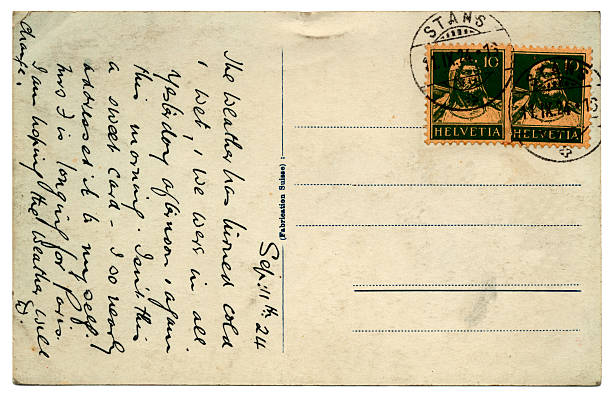 Sep. 11th 24
The Weather has turned cold
& wet, we were in all
Yesterday afternoon & again
this morning. Isn't this
a sweet card - I so nearly
addressed it to myself!
Mrs J is longing for Paris.
I am hoping the Weather will
change.
(Fabrication Suisse)
STANS
10
HELVETIA
10
HELVETIA